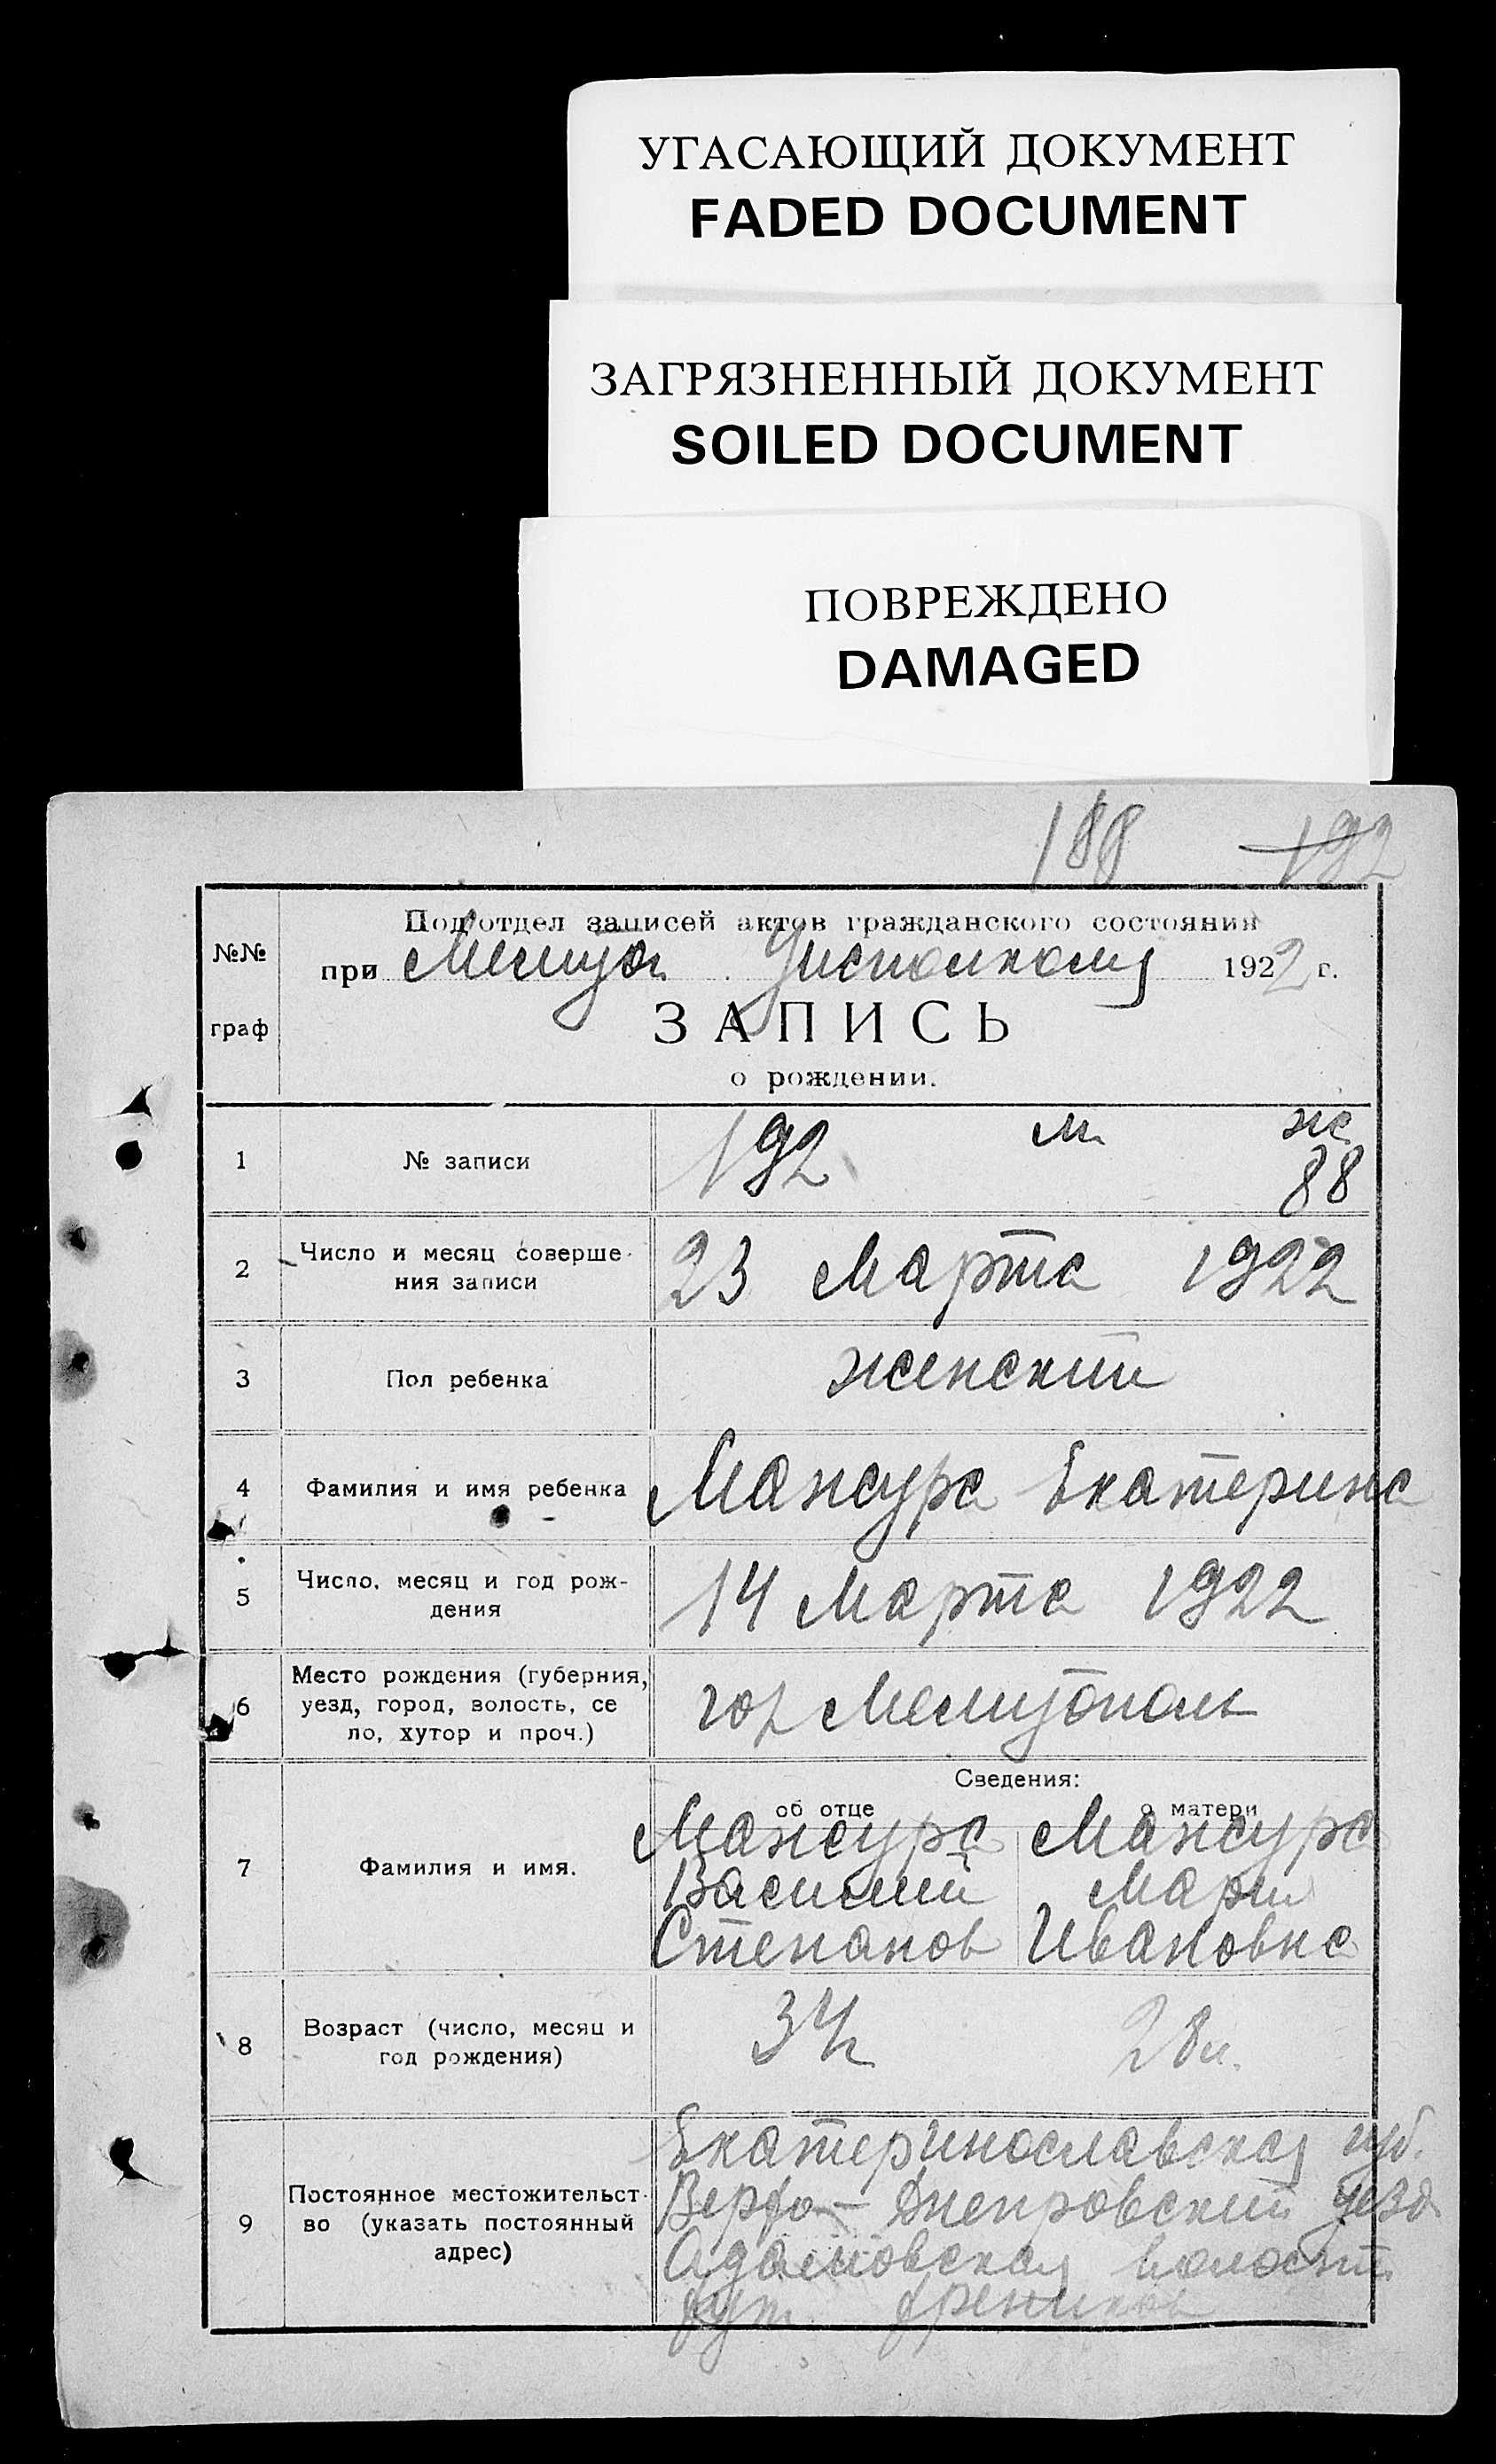 УГАСАЮЩИЙ ДОКУМЕНТ
FADED DOCUMENT
ЗАГРЯЗНЕННЫЙ ДОКУМЕНТ
SOILED DOCUMENT
ПОВРЕЖДЕНО
DAMAGED
188 192
№№ граф
Подотдел записей актов гражданского состояния
при Мелитоп. Уисполкому 1922 г.
ЗАПИСЬ
о рождении.
1 № записи 192 м. ж
88
2 Число и месяц соверше-
ния записи 23 Марта 1922
3 Пол ребенка женский
4 Фамилия и имя ребенка Мансура Екатерина
5 Число, месяц и год рож-
дения 14 Марта 1922
6 Место рождения (губерния,
уезд, город, волость, се
ло, хутор и проч.) гор Мелитополь
Сведения:
об отце о матери
7 Фамилия и имя. Мансура Мансура
Василий Мария
Степанов Ивановна
8 Возраст (число, месяц и
год рождения) 34 28 л.
9 Постоянное местожительст-
во (указать постоянный
адрес) Екатеринославская губ.
Верхо-Днепровский уезд
Адамовская волость
хут.